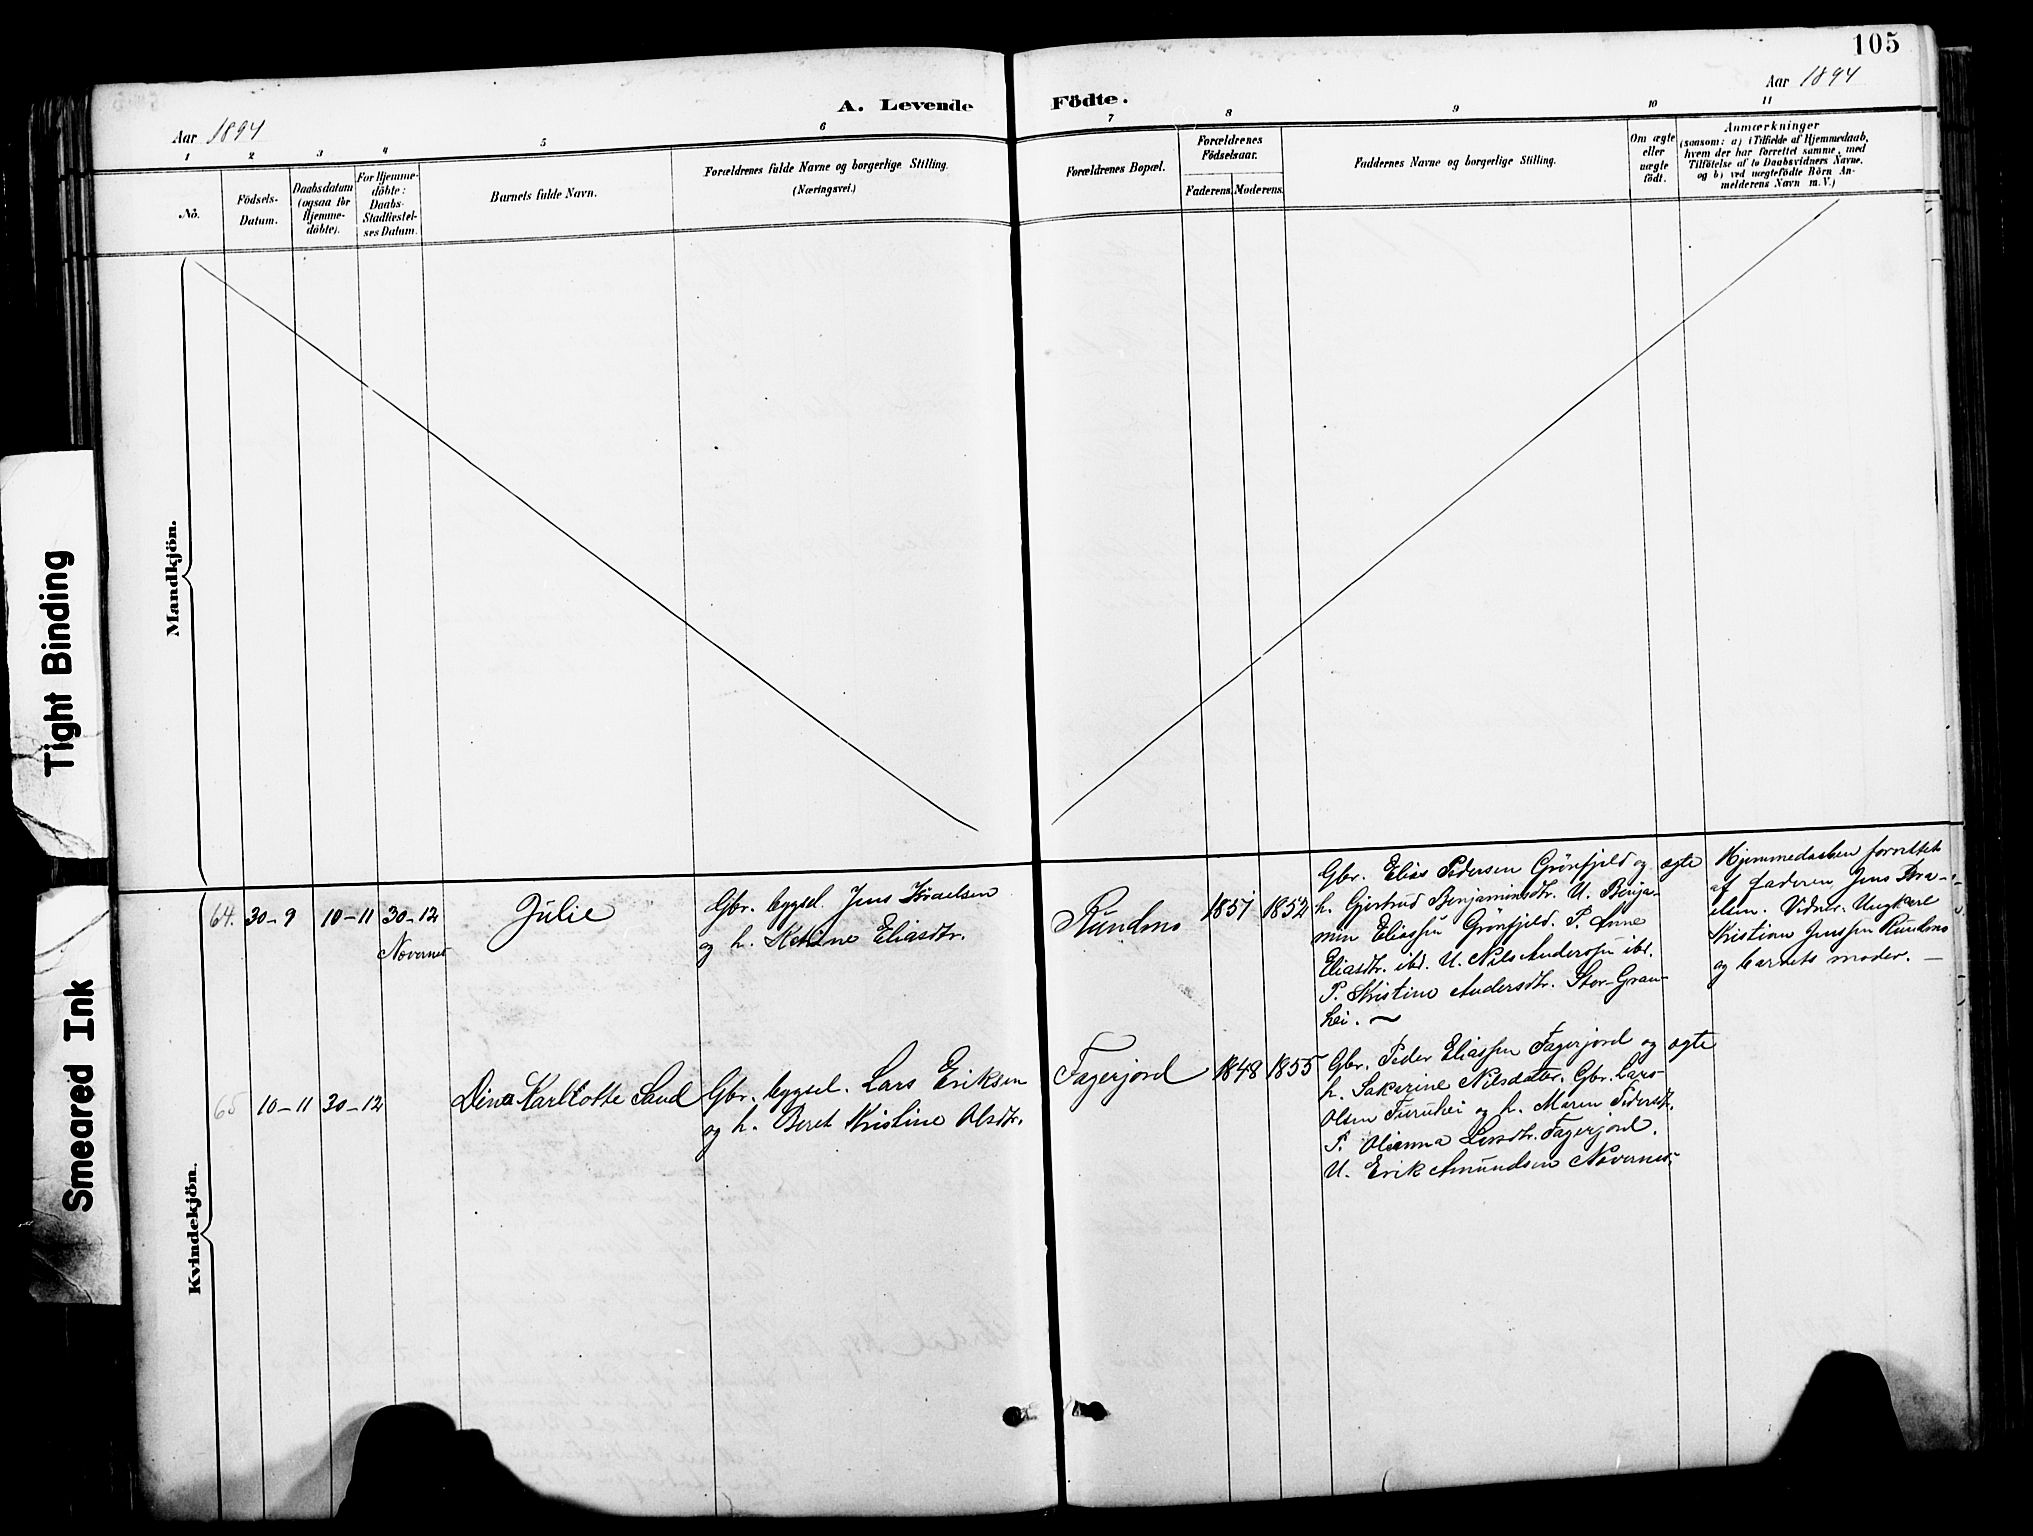 105
Aar 1894
A. Levende Födte.
Aar 1894
1 2 3 4 5 6 7 8 9 10 11
No.
Födsels-
Datum.
Daabsdatum
(ogsaa for
Hjemme-
döbte).
For Hjemme-
döbte:
Daabs-
Stadfestel-
ses Datum.
Barnets fulde Navn.
Forældrenes fulde Navne og borgerlige Stilling.
(Næringsvei.)
Forældrenes Bopæl.
Forældrenes
Födselsaar.
Faderens. Moderens.
Faddernes Navne og borgerlige Stilling.
Om ægte
eller
uægte
födt.
Anmærkninger
(saasom: a) i Tilfælde af Hjemmedaab,
hvem der har forrettet samme, med
Tilföielse af to Daabsvidners Navne,
og b) ved uægtefödte Börn An-
melderens Navn m. V.)
Mandkjön.
Kvindekjön.
64. 30-9 10-11 30-12
Novernes
Julie
Gbr. bygsel. Jens Israelsen
og h. Eliasdtr.
Rundmo
1851 1852
Gbr. Elias Pedersen Grönfjeld og
h. Gjertrud Benjaminsdtr. U. Benja-
min Eliassen Grönfjeld. P. Anne
Eliasdtr. ibd. U. Nils Anderssen ibd.
P. Kristine Andersdtr. Stor-Gran-
hei.
ægte
Hjemmedaaben forrettet
af faderen Jens Isra-
elsen. Vidner: Ungkarl
Kristian Jenssen Rundmo
og barnets moder.
65 10-11 30-12
Dina Karllotte Sand
Gbr. bygsel. Lars Eriksen
og h. Beret Kristine Olsdtr.
Fagerjord
1848 1855
Gbr. Peder Eliassen Fagerjord og
h. Sakarine Nilsdatter. Gbr. Lars
Olsen Furuhei og h. Maren Pedersdtr.
P. Olianna Larsdtr. Fagerjord.
U. Erik Amundsen Novernes.
ægte
Tight Binding
Smeared Ink